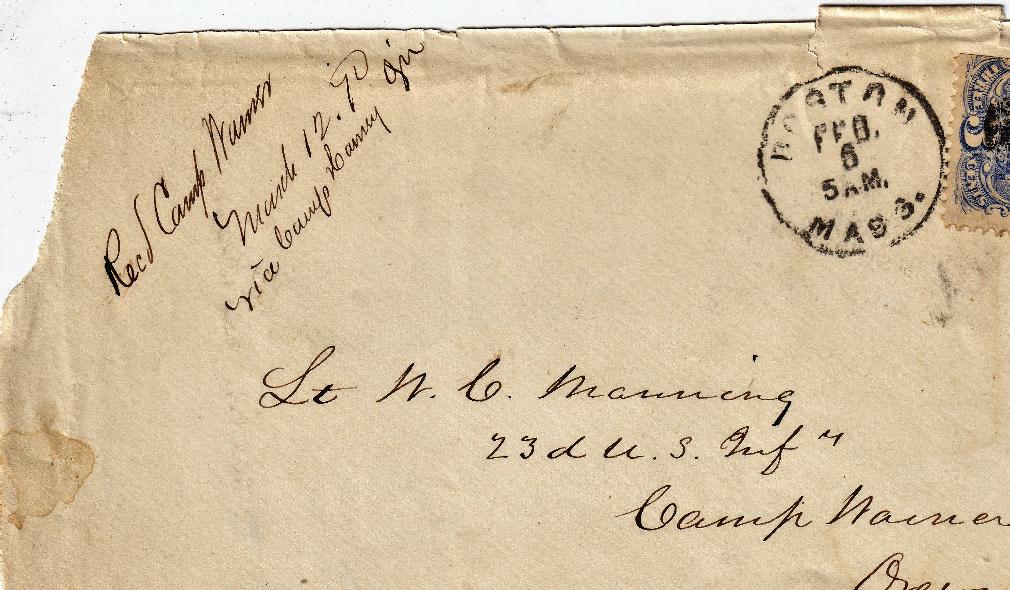 Recd Camp Warner
March 12. 70
via Camp
BOSTON
FEB.
6
5 AM.
MASS.
Lt W. C. Manning
23d U. S. Infy
Camp Warner